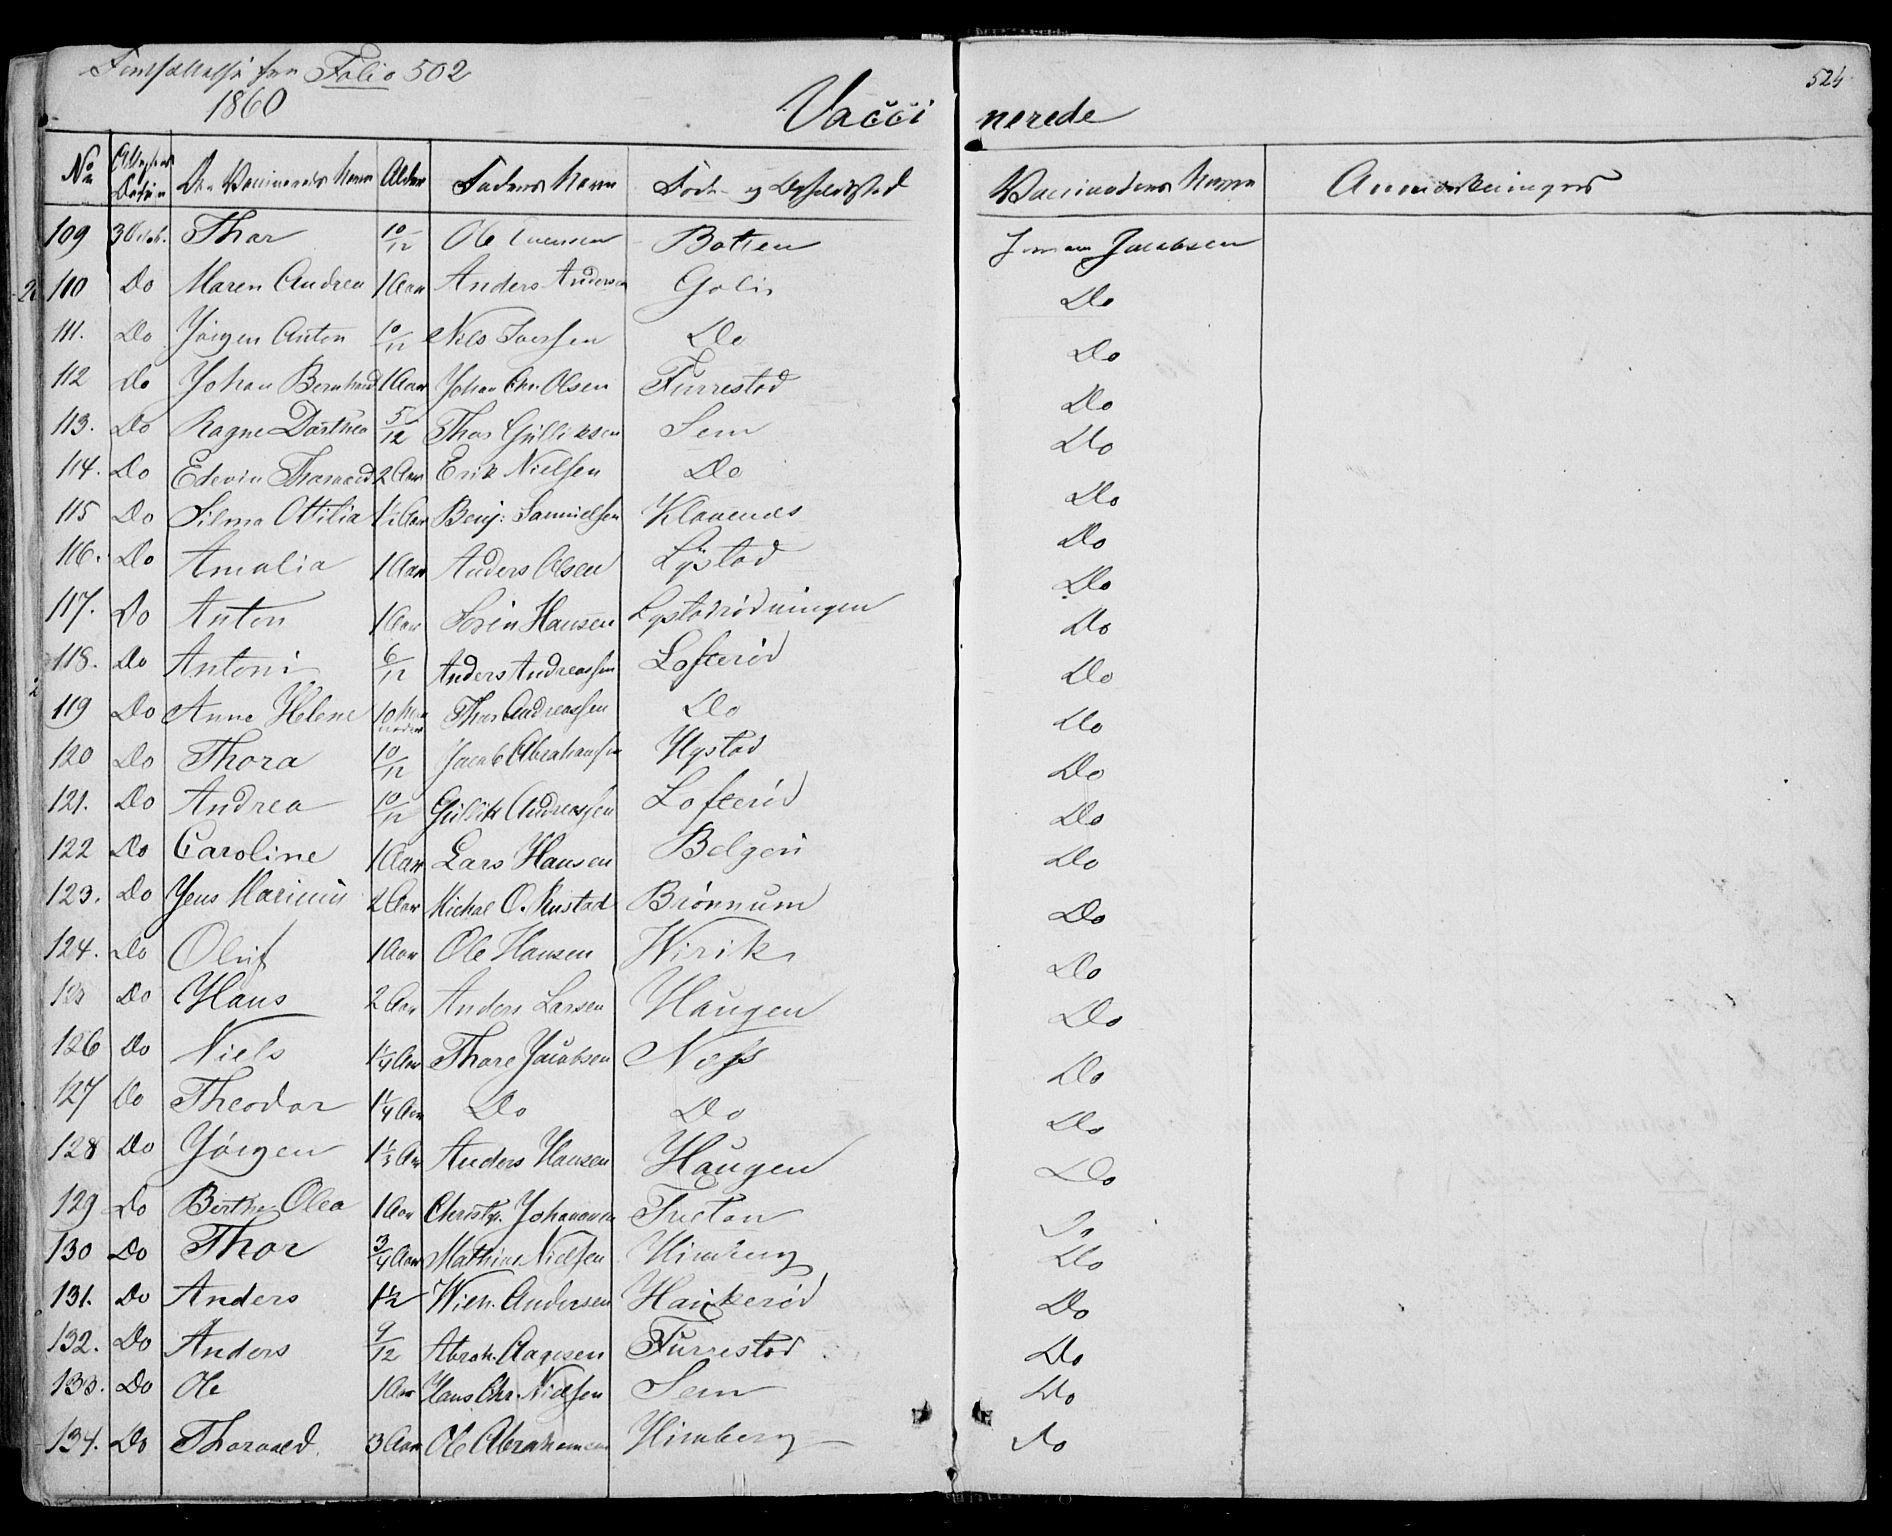 Fortsættelse fra Folio 502
1860
524
Vacci nerede
No Attestens Datum Den Vaccineredes Navn Alder Faderens Navn Føde- og Opholdssted Vaccinatørens Navn Anmærkninger
109 3 Octob. Thor 10/12 Ole Botten Jacobsen
110 Do Maren Andrea 1 Aar Anders Andersen Golis Do
111. Do Jørgen Anton 10/12 Nils Iversen Do Do
112 Do Johan Bernhard 1 Aar Johan Chr. Olsen Furrestad Do
113. Do Ragne Dorthea 5/12 Thor Gulliksen Sem Do
114. Do Edevin Thorvald 2 Aar Erik Nielsen Do Do
115 Do Silma Ottilia 1½ Aar Benj: Samuelsen Klavenes Do
116. Do Amalia 1 Aar Anders Olsen Lystad Do
117. Do Anton 1 Aar Søren Hansen Lystadrødningen Do
118. Do Antoni 6/12 Anders Andreassen Lofterød Do
119 Do Anne Helene 10 Maaneder Thor Andreassen Do Do
120 Do Thora 10/12 Jacob Abrahamsen Hystad Do
121. Do Andrea 10/12 Gullik Andreassen Lofterød Do
122 Do Caroline 1 Aar Lars Hansen Bolgen Do
123. Do Jens Marinius 2 Aar Michal O. Rustad Brønnum Do
124. Do Oluf 1 Aar Ole Hansen Wirik Do
125 Do Hans 2 Aar Anders Larsen Haugen Do
126 Do Niels 1¼ Aar Thore Jacobsen Næss Do
127 Do Theodor 1¼ Aar Do Do Do
128 Do Jørgen 1⅓ Aar Anders Hansen Haugen Do
129 Do Berthe Olea 1 Aar Christ. Johannesen Do
130 Do Thor ¾ Aar Mathias Nielsen Himberg Do
131. Do Anders 1½ Andersen Haukerød Do
132. Do Anders 9/12 Abrah. Aagesen Furrestad Do
133. Do Ole 1 Aar Hans Chr. Nielsen Sem Do
134. Do Thorvald. 3 Aar Ole Abrahamsen Himberg Do